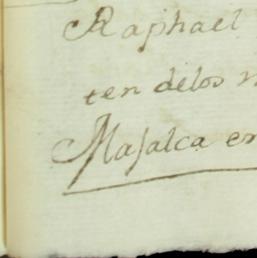 Raphael
ten delos
Masalca en